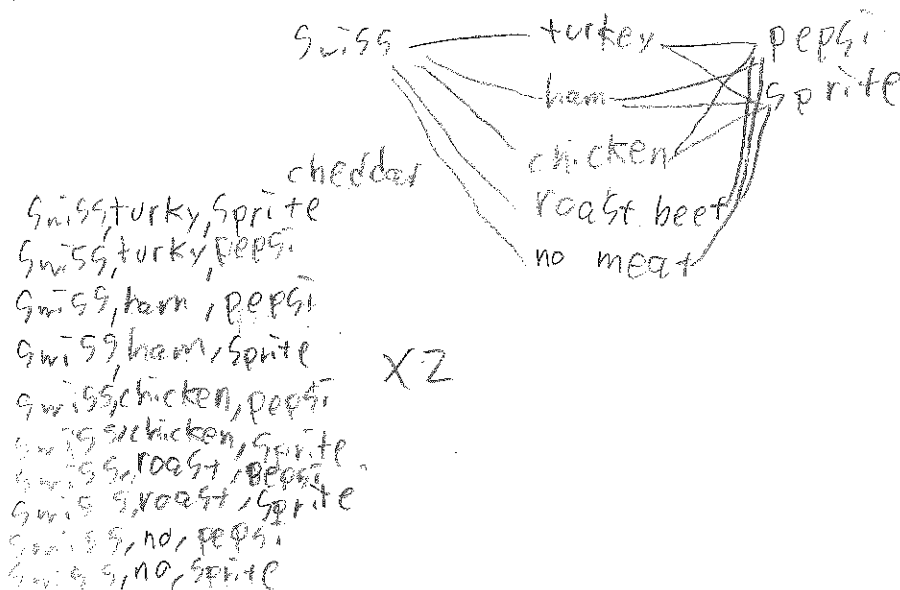 swiss turkey pepsi
ham sprite
chicken
cheddar
roast beef
no meat
swiss, turky, sprite
swiss, turky, pepsi
swiss, ham, pepsi
swiss, ham, sprite
X2
swiss, chicken, pepsi
swiss, chicken, sprite
swiss, roast, pepsi
swiss, roast, sprite
swiss, no, pepsi
swiss, no, sprite